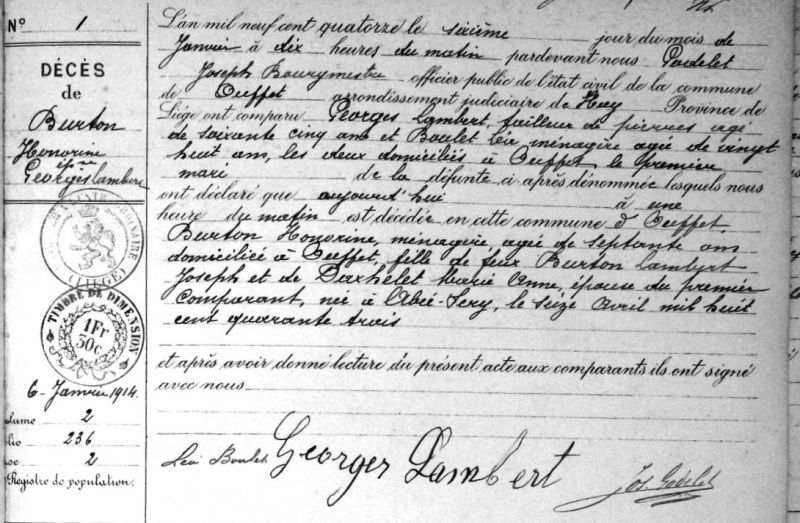 N° 1
DÉCÈS
de
Burton
Honorine
épse
Georges Lambert
TIMBRE DE DIMENSION
1 Fr
50 c
(LIÈGE)
6 Janvier 1914.
lume 2
lio 236
2
Registre de population.
L'an mil neuf cent quatorze le sixième jour du mois de
Janvier à dix heures du matin pardevant nous Godelet
Joseph Bourgmestre officier public de l'état civil de la commune
de Ouffet arrondissement judiciaire de Huy Province de
Liège ont comparu Georges Lambert tailleur de pierres agé
de soixante cinq ans et Boulet Léa ménagère agée de vingt
huit ans, les deux domiciliés à Ouffet, le premier
mari de la défunte ci après dénommée lesquels nous
ont déclaré que aujourd'hui à une
heure du matin est décédée en cette commune d'Ouffet,
Burton Honorine, ménagère, agée de septante ans
domiciliée à Ouffet, fille de feux Burton Lambert
Joseph et de Daxhelet Marie Anne, épouse du premier
comparant, née à l'Abée-Scry, le seize Avril mil huit
cent quarante trois
et après avoir donné lecture du présent acte aux comparants ils ont signé
avec nous
Léa Boulet Georges Lambert Jos. Godelet